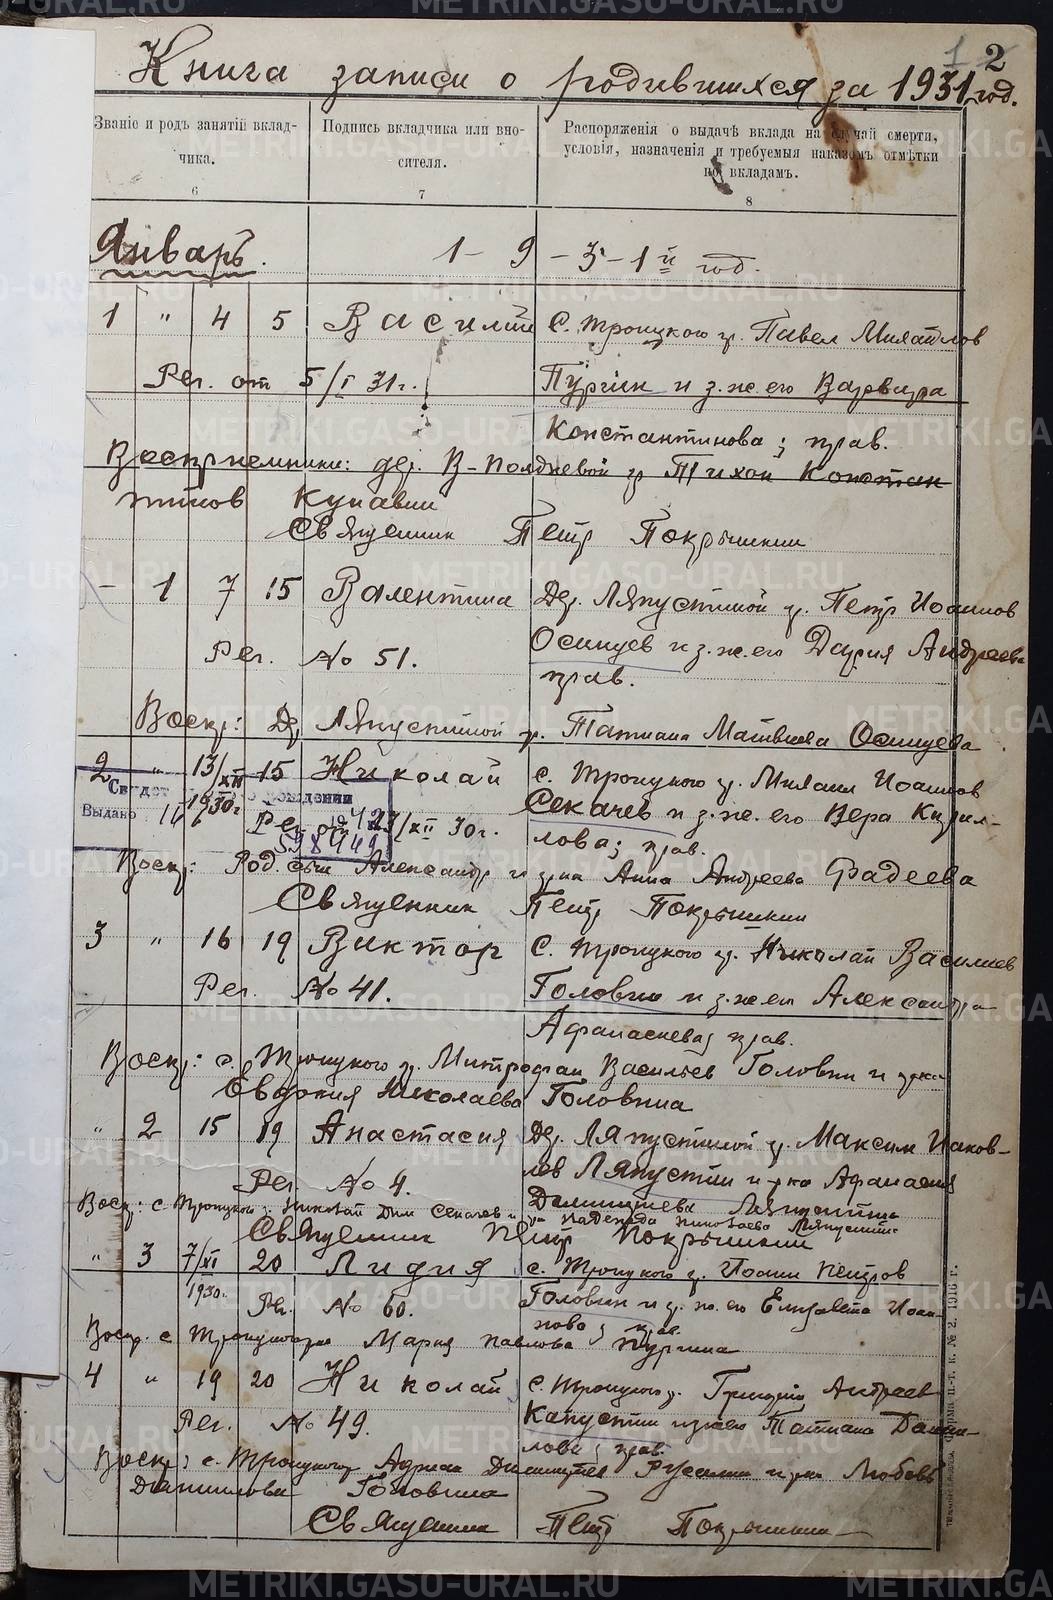 1 2
Книга записи о родившихся за 1931 год.
Званіе и родъ занятій вклад-
чика.
6
Подпись вкладчика или вно-
сителя.
7
Распоряженія о выдачѣ вклада на случай смерти,
условія, назначенія и требуемыя наказомъ отмѣтки
по вкладамъ.
8
Январь. 1 - 9 - 3 - 1й год.
1 " 4 5 Василий С. Троицкого гр. Павел Михайлов
Рег. от 5/I 31г. Пургин и з. же. его Варвара
Константинова; прав.
Восприемники: дер. В-Полдневой гр Тихон Констан
тинов Кунавин
Священник Петр Покрышкин
- 1 7 15 Валентина Дер. Ляпустиной гр. Петр Иоаннов
Рег. № 51. Осинцев и з. же. его Дария Андреева
прав.
Воспр: Др Ляпустиной гр. Татиана Матвиева Осинцева
2 " 13/XII 15 Николай с. Троицкого гр. Михаил Иоаннов
1930г Рег. от 23/XII 30г. Секачев и з. же. его Вера Кирил-
лова; прав.
Свидет о рождении
Выдано
Воспр: Род. сын Александр и гр-ка Анна Андреева Фадеева
Священник Петр Покрышкин
3 " 16 19 Виктор С. Троицкого гр. Николай Василиев
Рег. № 41. Головин и з. же его Александра
Афанасиева; прав.
Воспр: с. Троицкого гр. Митрофан Васильев Головин и гр-ка
Евдокия Николаева Головина
" 2 15 19 Анастасия Др. Ляпустиной гр. Максим Иаков-
Рег. № 4. лев Ляпустин и гр-ка Афанасия
Воспр: с Троицкого гр. Николай Дим Секачев и гр-ка Надежда Николаева Ляпустина
Священник Петр Покрышкин
" 3 7/XI 20 Лидия с. Троицкого гр. Иоанн Петров
1930г. Рег. № 60. Головин и з. же. его Елизавета Иоан-
нова; прав.
Воспр. с Троицкого гр-ка Мария Павлова Пургина
4 " 19 20 Николай с. Троицкого гр. Григорий Андреев
Рег. № 49. Капустин и з. же его Татиана Дании-
лова; прав.
Воспр: с. Троицкого гр Адриан Димитриев Русалин и гр-ка Любовь
Даниилова Головина
Священник Петр Покрышкин
METRIKI.GASO-URAL.RU